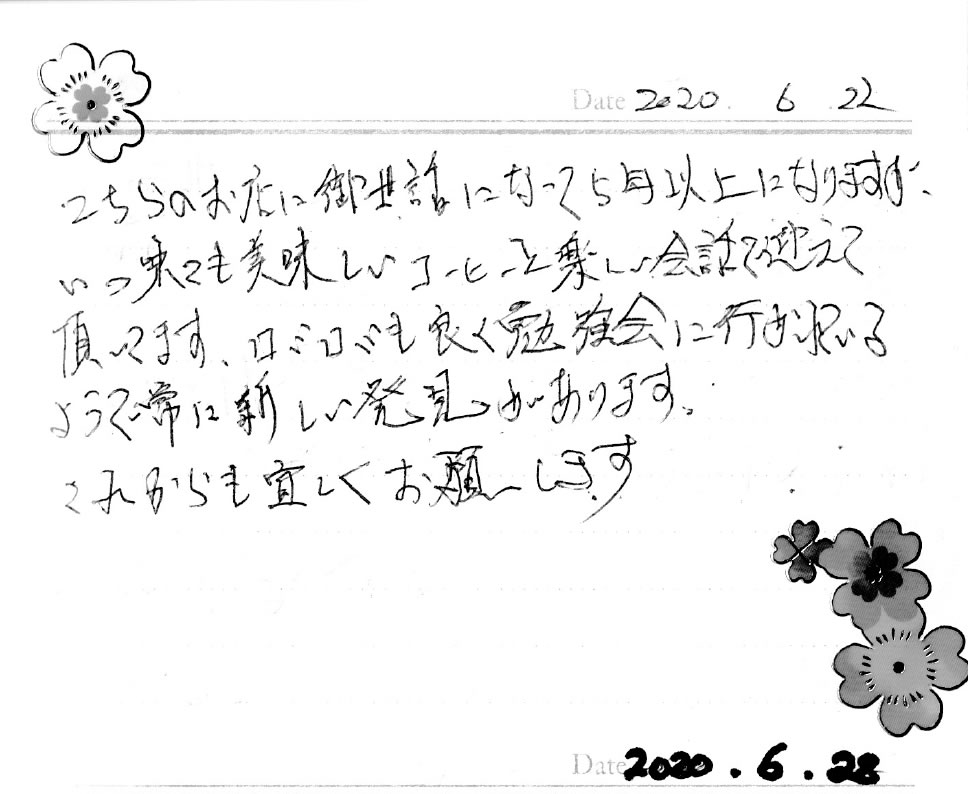 Date 2020. 6. 22
こちらのお店に御世話になって5年以上になりますが、
いつ来ても美味しいコーヒーと楽しい会話で迎えて
頂いてます、口ミ口ミも良く勉強会に行かれている
ようで常に新しい発見があります。
これからも宜しくお願いします
Date 2020.6.28